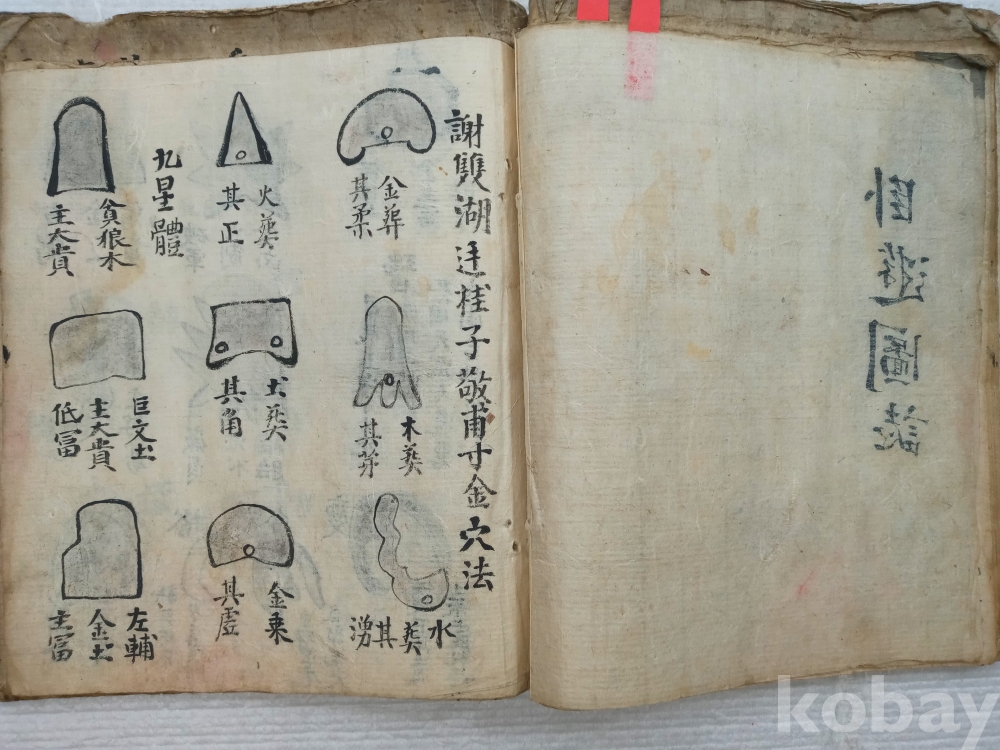 臥遊圖誌
謝雙湖廷桂子敬甫寸金穴法
金葬
其柔
木葬
其芽
水
葬
其
湧
火葬
其正
土葬
其角
金乘
其虛
九星體
貪狼木
主大貴
巨文土
主大貴
低冨
左輔
金土
主冨
kobay